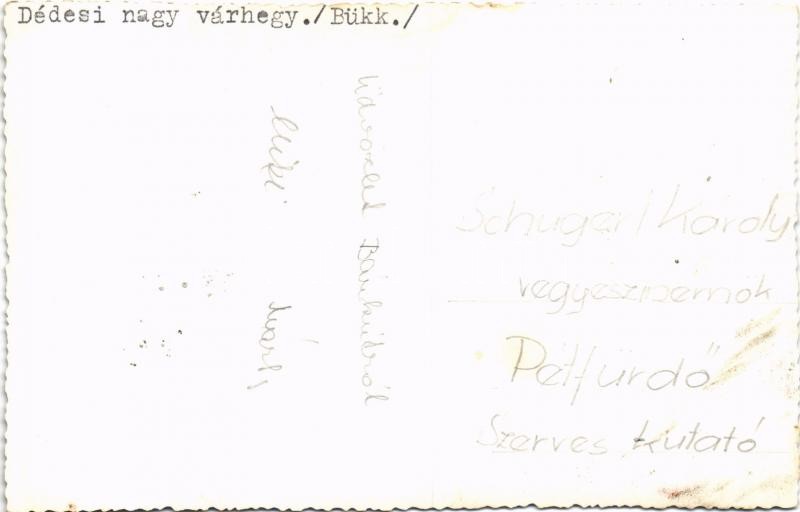 Dédesi nagy várhegy./Bükk./
Üdvözlet Bánkútról
Miki
Schügerl Károly
vegyészmérnök
Pétfürdő
Szerves kutató